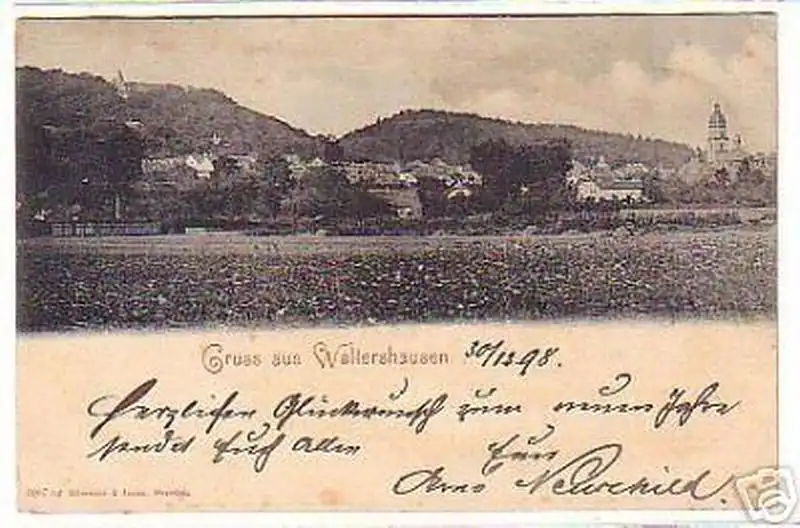 Gruss aus Waltershausen 30/12 98.
Herzlichen Glückwunsch zum neuen Jahre
sendet Euch Allen Euer
Arno